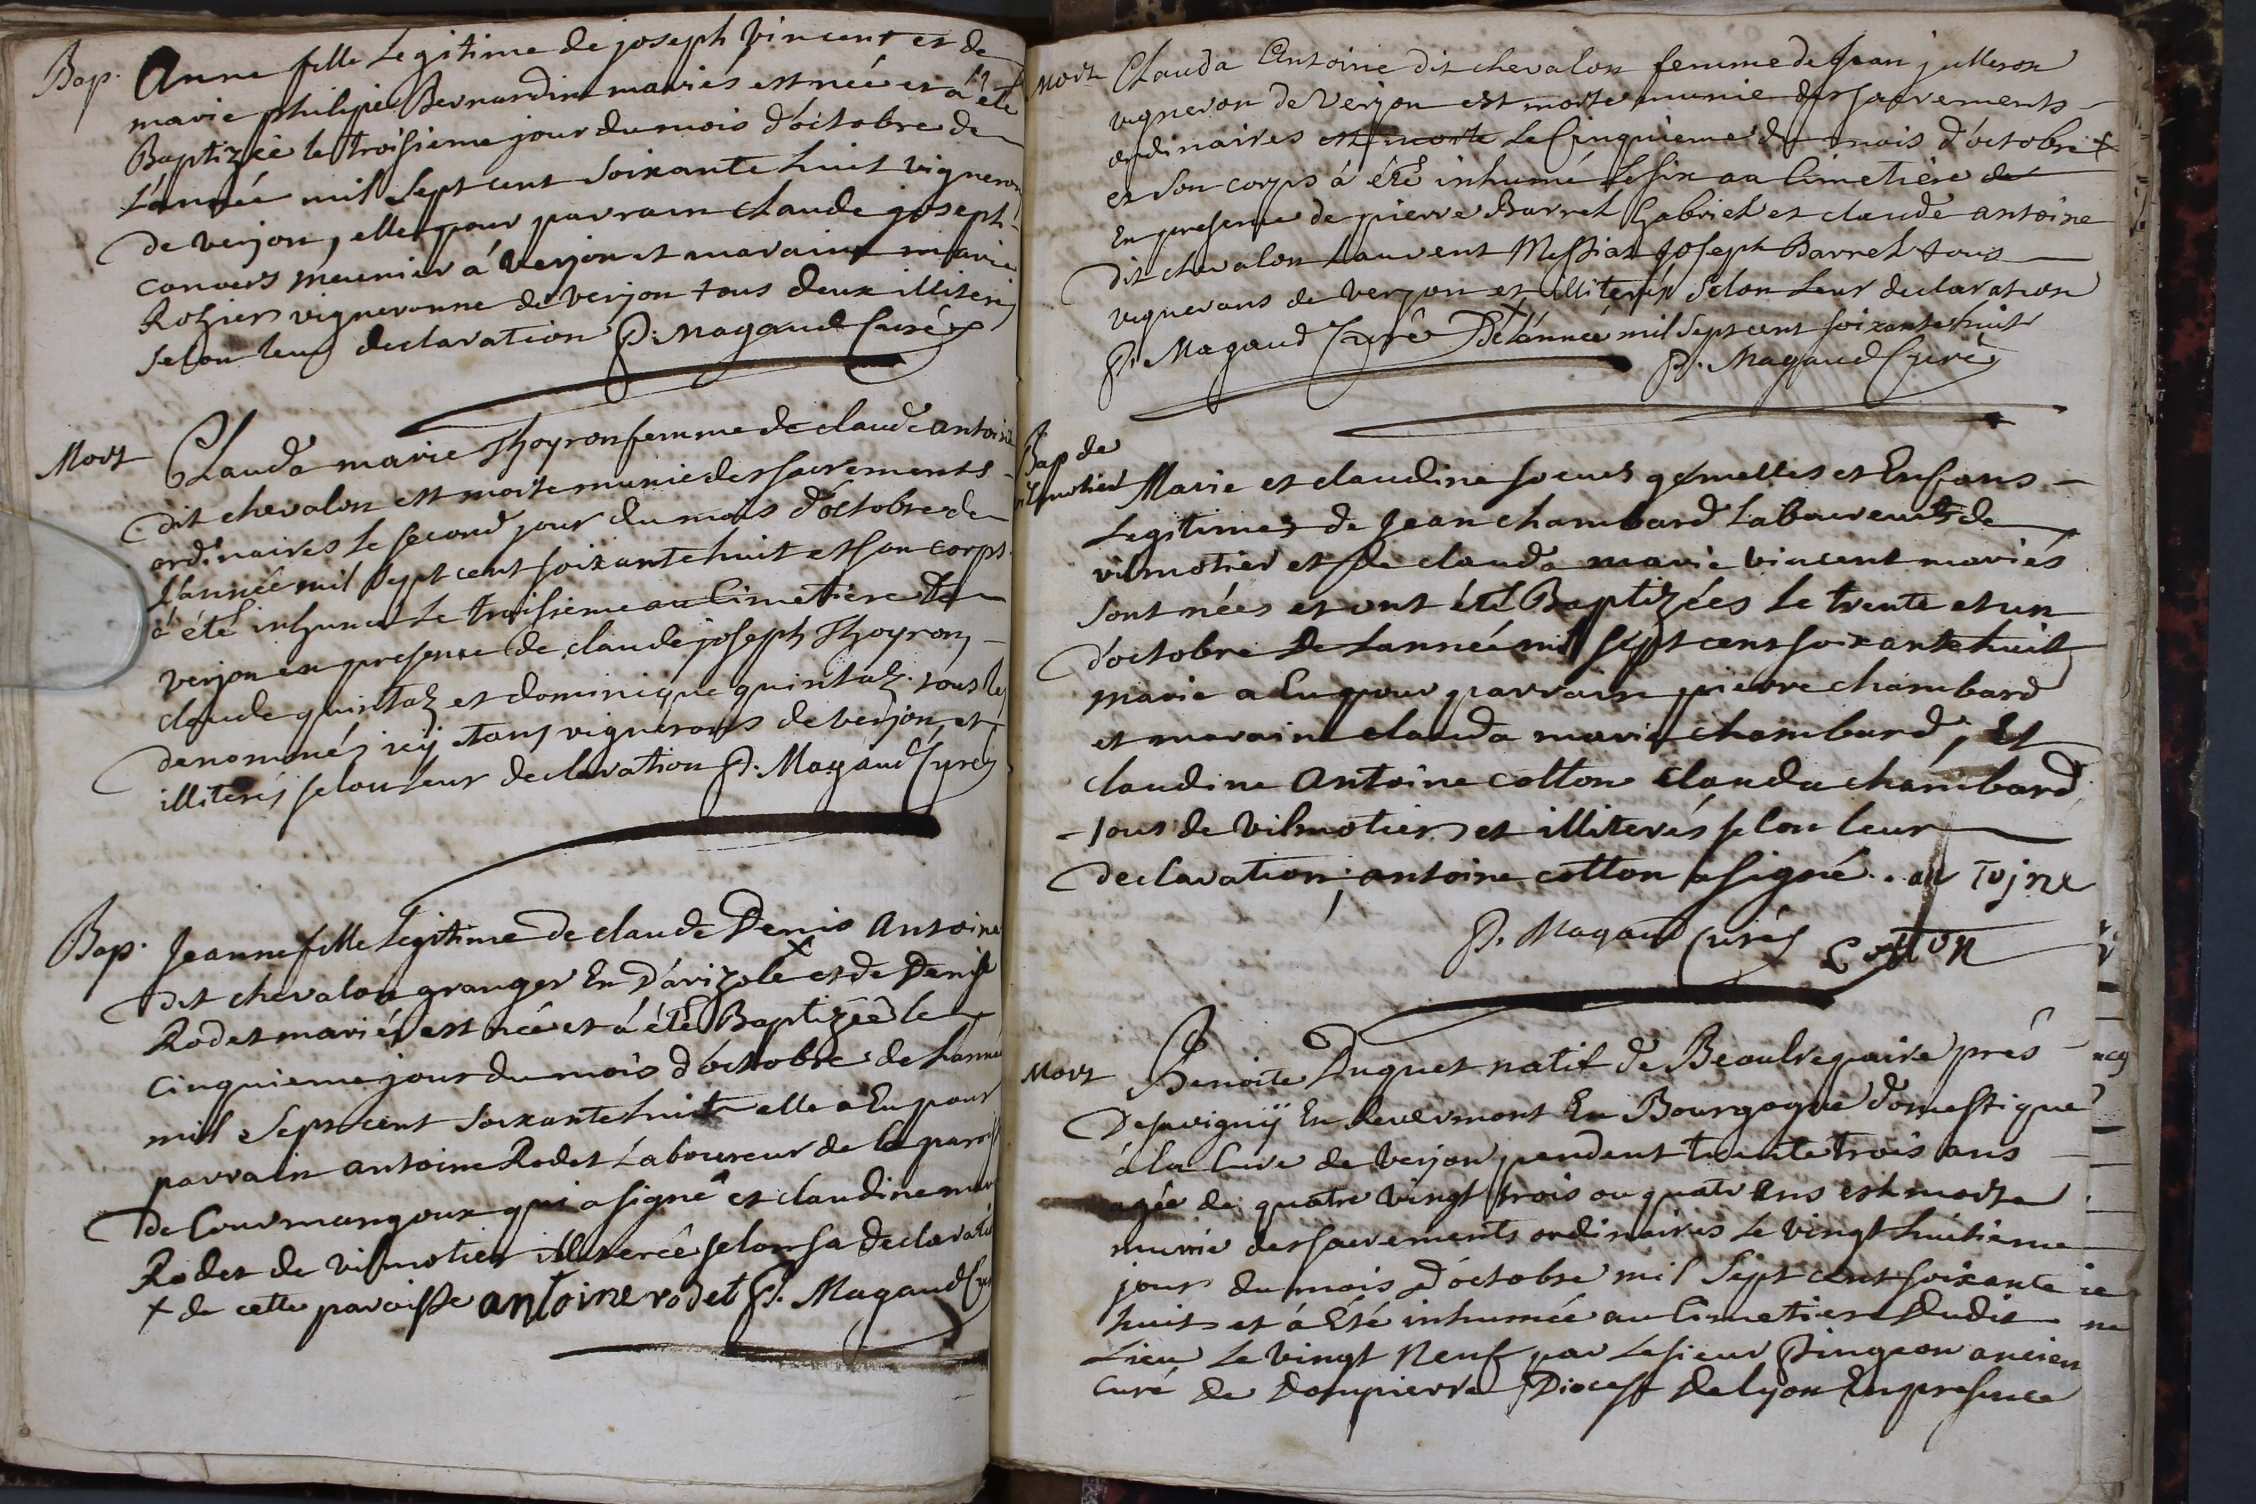 Bap. Anne fille Legitime de joseph Vincent et de
marie philipie Bernardin mariés est née et à été
Baptizée le troisieme jour du mois d'octobre de
L'année mil Sept cent soixante huit vigneron
de verjon, elle pour parrain claude joseph
convers meunier à verjon et maraine marie
Rozier vigneronne de verjon tous deux illiteri
selon leur declaration P. Magaud Curé
Mort Clauda marie Thoyron femme de claude antoine
dit chevalon est morte munie des sacrements
ordinaires le second jour du mois d'octobre de
L'année mil sept cent soixante huit et son corps
à été inhumé Le troisieme au Cimetiere de
verjon en presence de claude joseph Thoyron
claude quintaz et dominique quintaz tous les
denommés icy etans vignerons de verjon et
illiterés selon leur declaration P. Magaud Curé
Bap. Jeanne fille Legitime de claude Denis Antoine
dit chevalon granger En D'arizole x et de Denise
Rodet mariés est née et à été Baptizée le
cinquieme jour du mois d'octobre de L'année
mil Sept cent soixante huit elle a Eu pour
parrain antoine Rodet Laboureur de la paroiss
de Courmangoux qui a signé et claudine mar
Rodet de vilmotier illiterée selon sa declarati
x de cette paroisse antoine rodet P. Magaud Cur
Mort Clauda Antoine dit chevalon femme de Jean julleron
vigneron de Verjon est morte munie des sacrements
ordinaires est morte Le Cinquieme du mois d'octobre x
et son corps à été inhumé Le six au Cimetiere de
En presence de pierre Barret Gabriel et claude antoine
dit chevalon Laurent Messiat Joseph Barret tous
vignerons de verjon et illiterés selon Leur declaration
P. Magaud Curé x De L'année mil sept cent soixante huit
P. Magaud Curé
Bap de
vilmotier Marie et claudine soeurs gémelles et Enfans
Legitimes de Jean chambard Laboureur de
vilmotier et de clauda marie vincent mariés
sont nées et ont été Baptizées le trente et un
d'octobre de Lannée mil sept cent soixante huit
marie a Eu pour parrain pierre chambard
et maraine clauda marie chambard, Et
claudine Antoine cotton clauda chambard
tous de vilmotier et illiterés selon leur
declaration; antoine cotton a signé. antoine
P. Magaud Curé Cotton
Mort Benoite Duquet natif de Beaulrepaire près
De savigny En Revermont En Bourgogne domestique
à la Cure de Verjon pendent trente trois ans
agée de quatre vingt trois ou quatr ans est morte
munie des sacrements ordinaires le vingt huitieme
jour du mois d'octobre mil Sept cent soixante
huit et à Eté inhumée au Cimetiere dudit
Lieu Le vingt Neuf par Le sieur Pingeon ancien
Curé de Dompierre Diocese de lyon En presence